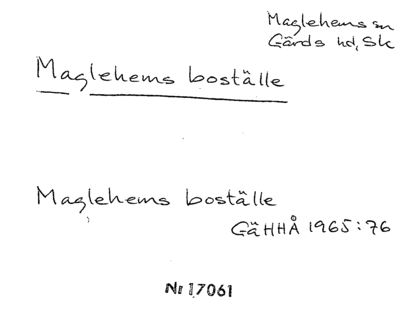 Maglehems sn
Gärds hd, Sk
Maglehems boställe
Maglehems boställe
GäHHÅ 1965:76
Nr 17061